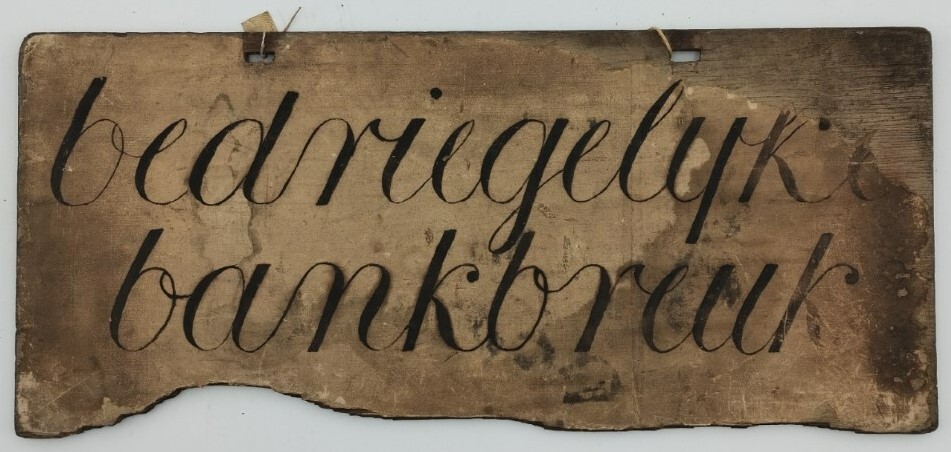 bedriegelyke
bankbreuk